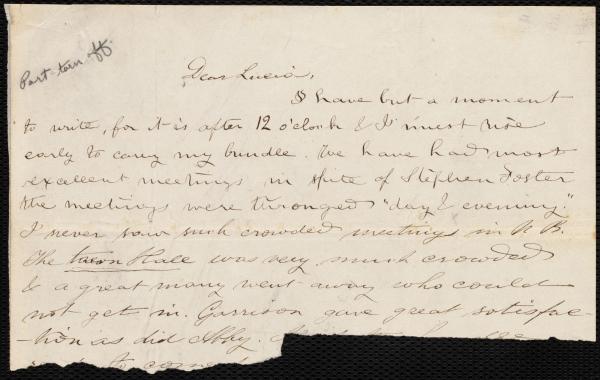 Part torn off.
Dear Lucia,
I have but a moment
to write, for it is after 12 o'clock & I must rise
early to carry my bundle. We have had most
excellent meetings in spite of Stephen Foster
the meetings were thronged "day & evening".
I never saw such crowded meetings in N B.
The town Hall was very much crowded
& a great many went away who could
not get in. Garrison gave great satisfac-
-tion as did Abby.